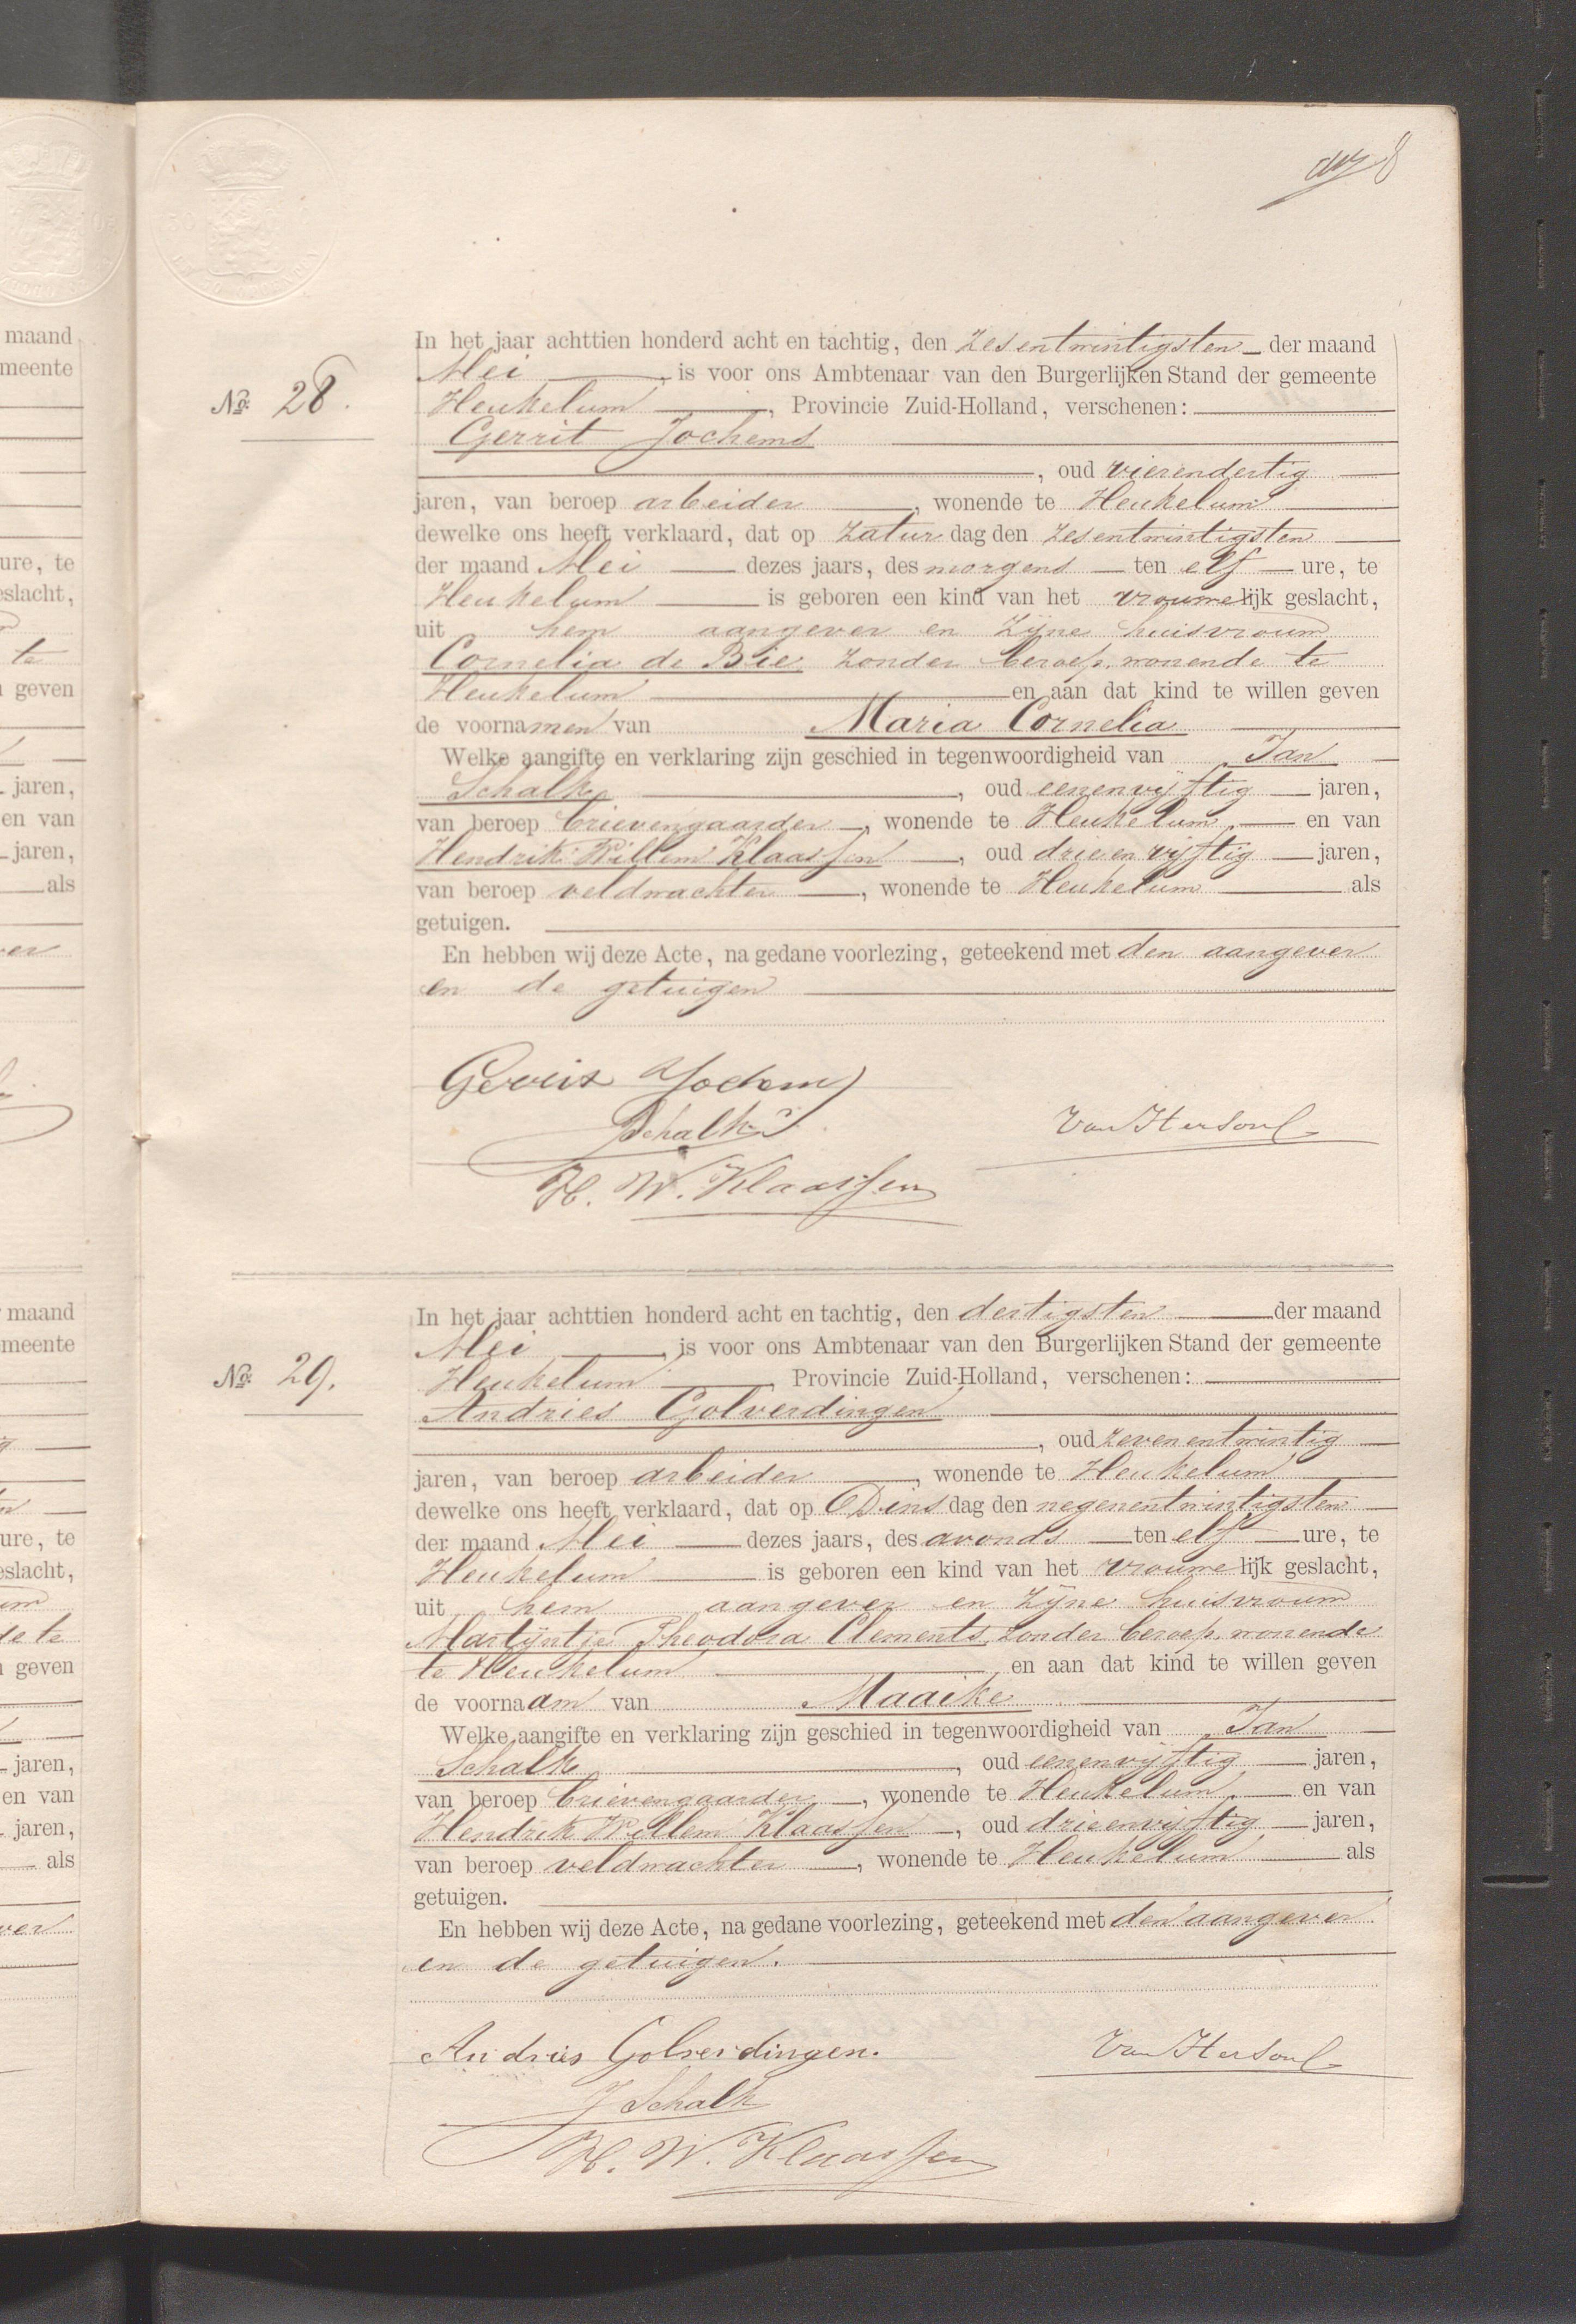 8
No. 28.
In het jaar achttien honderd acht en tachtig, den zesentwintigsten der maand
Mei, is voor ons Ambtenaar van den Burgerlijken Stand der gemeente
Heukelum, Provincie Zuid-Holland, verschenen:
Gerrit Jochems
, oud vierendertig
jaren, van beroep arbeider, wonende te Heukelum
dewelke ons heeft verklaard, dat op Zaturdag den zesentwintigsten
der maand Mei dezes jaars, des morgens ten elf ure, te
Heukelum is geboren een kind van het vrouwelijk geslacht,
uit hem aangever en zijne huisvrouw
Cornelia de Bie, zonder beroep, wonende te
Heukelum en aan dat kind te willen geven
de voornamen van Maria Cornelia
Welke aangifte en verklaring zijn geschied in tegenwoordigheid van Jan
Schalk, oud eenenvijftig jaren,
van beroep brievengaarder, wonende te Heukelum, en van
Hendrik Willem Klaassen, oud drieenvijftig jaren,
van beroep veldwachter, wonende te Heukelum als
getuigen.
En hebben wij deze Acte, na gedane voorlezing, geteekend met den aangever
en de getuigen
Gerrit Jochems
Schalk
H. W. Klaassen
No. 29.
In het jaar achttien honderd acht en tachtig, den dertigsten der maand
Mei, is voor ons Ambtenaar van den Burgerlijken Stand der gemeente
Heukelum, Provincie Zuid-Holland, verschenen:
Andries Golverdingen
, oud zevenentwintig
jaren, van beroep arbeider, wonende te Heukelum
dewelke ons heeft verklaard, dat op Dinsdag den negenentwintigsten
der maand Mei dezes jaars, des avonds ten elf ure, te
Heukelum is geboren een kind van het vrouwelijk geslacht,
uit hem aangever en zijne huisvrouw
Martijntje Theodora Clements, zonder beroep, wonende
te Heukelum en aan dat kind te willen geven
de voornaam van Maaike
Welke aangifte en verklaring zijn geschied in tegenwoordigheid van Jan
Schalk, oud eenenvijftig jaren,
van beroep brievengaarder, wonende te Heukelum, en van
Hendrik Willem Klaassen, oud drieenvijftig jaren,
van beroep veldwachter, wonende te Heukelum als
getuigen.
En hebben wij deze Acte, na gedane voorlezing, geteekend met den aangever
en de getuigen.
Andries Golverdingen.
J Schalk
H. W. Klaassen